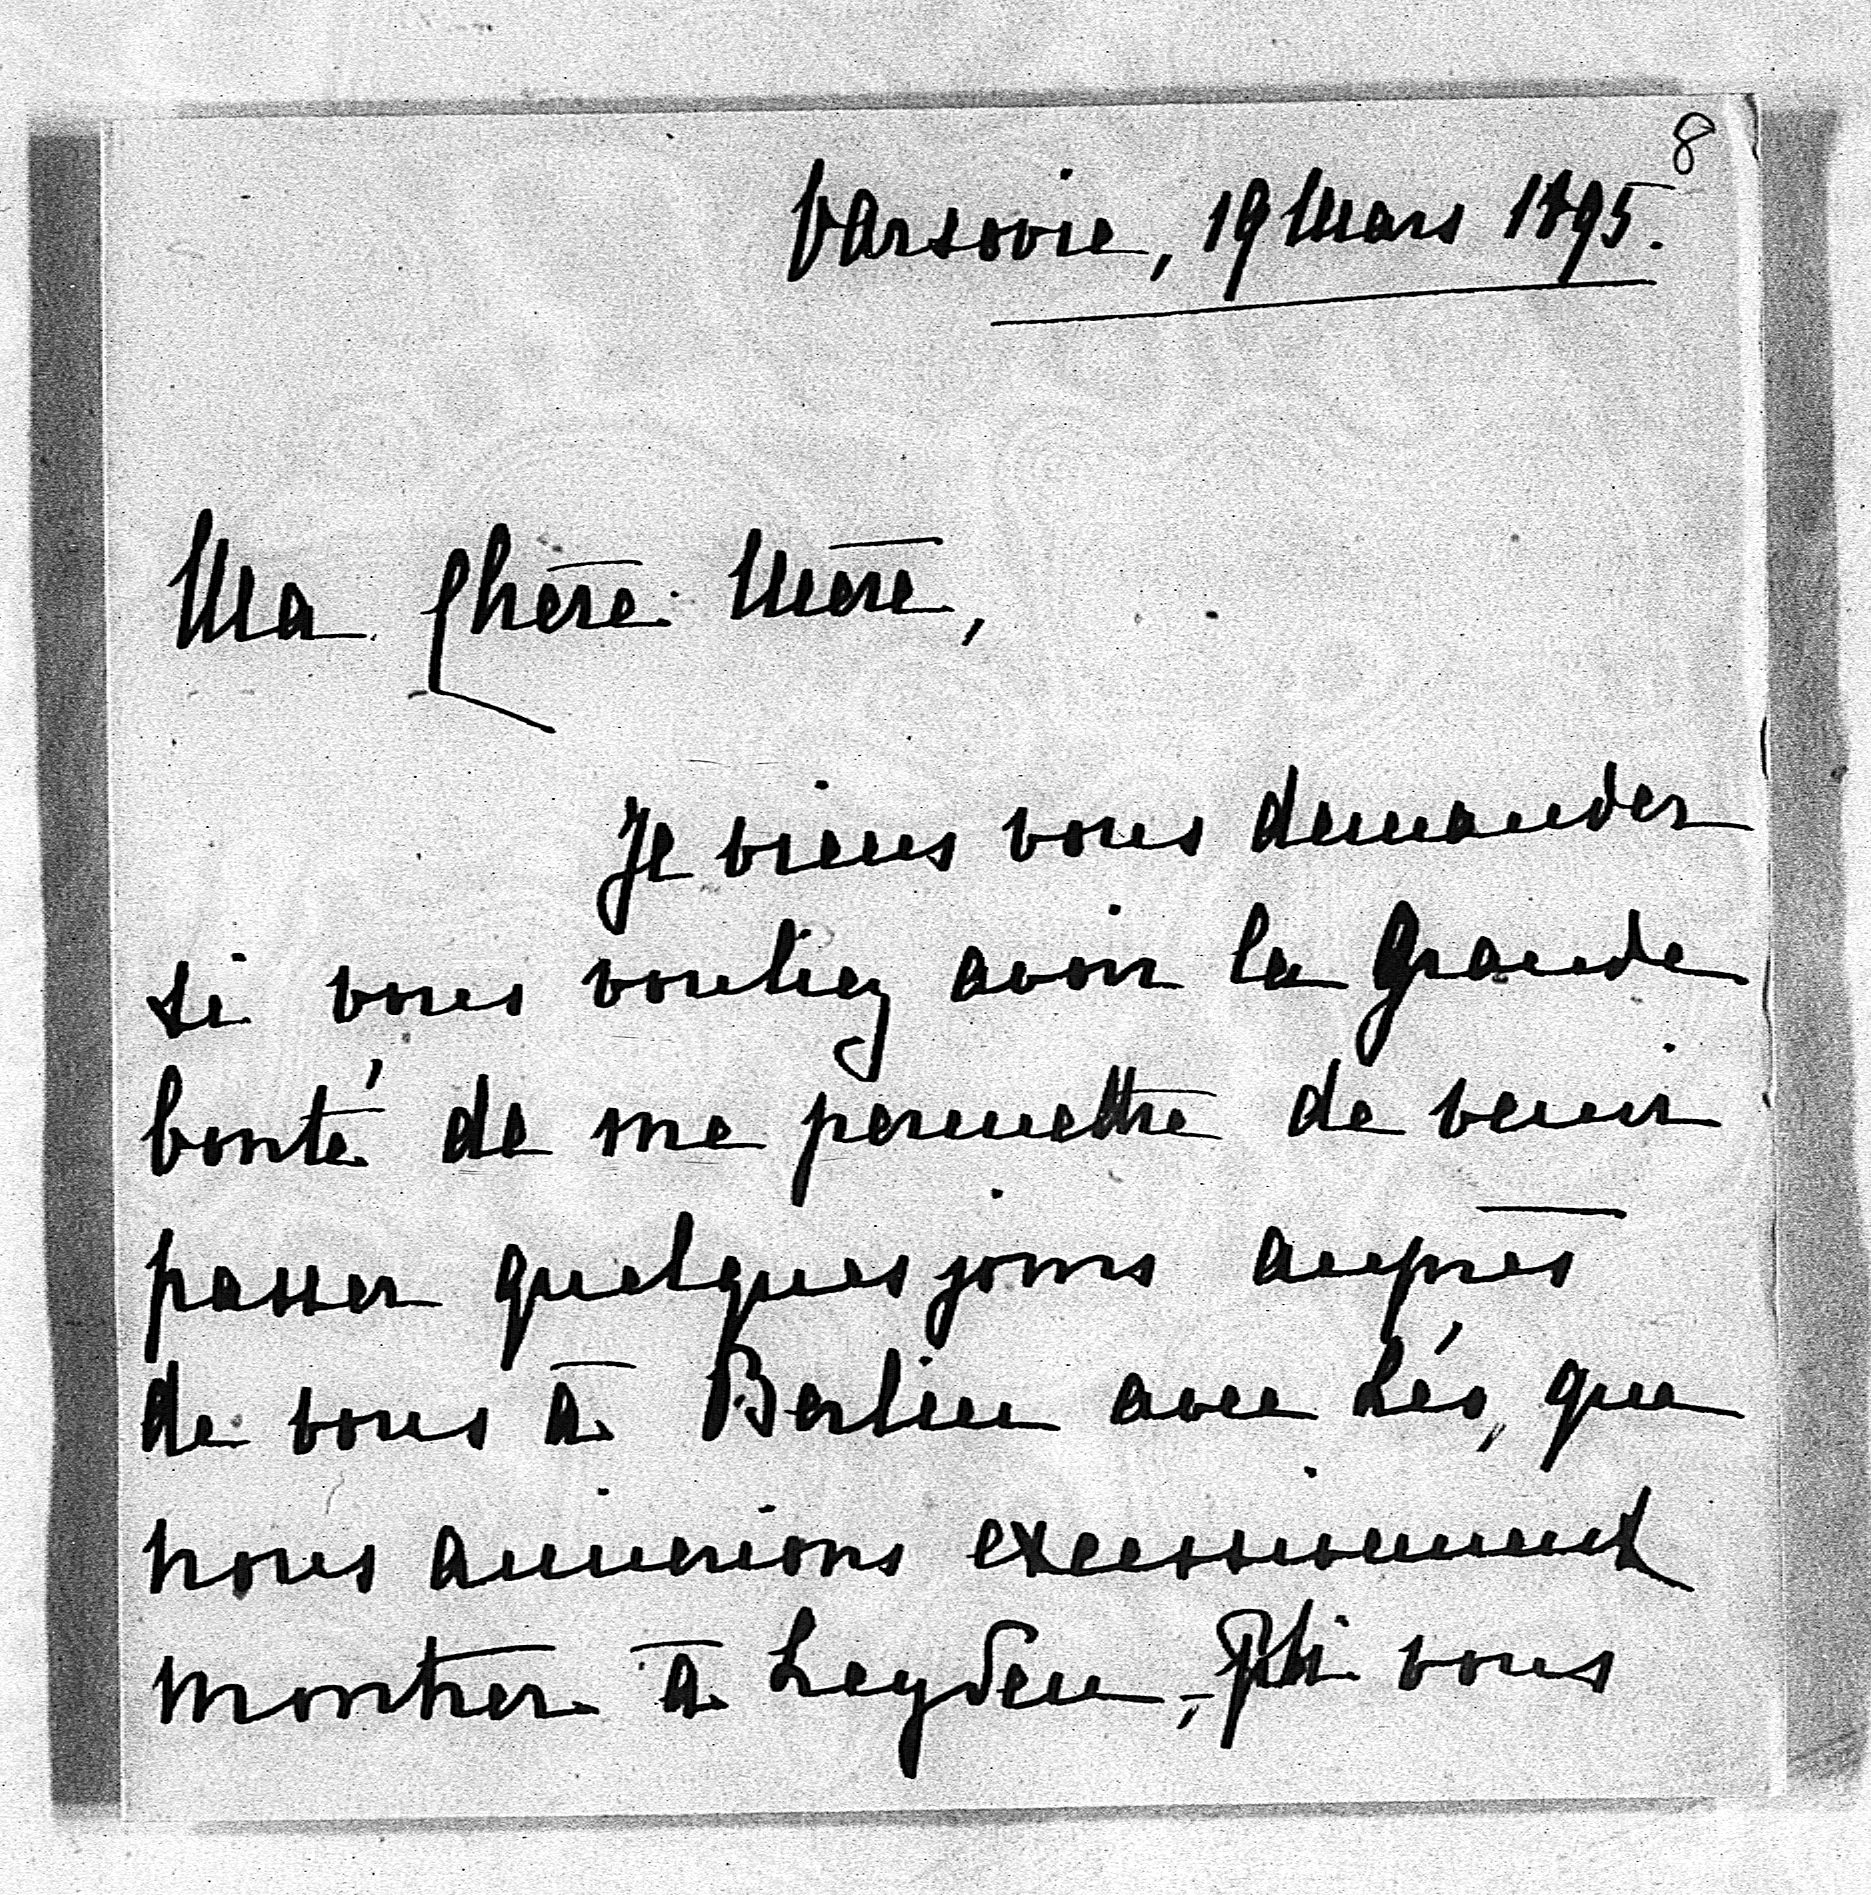 8
Varsovie, 19 Mars 1895.
Ma Chère Mère,
Je viens vous demander
si vous vouliez avoir la grande
bonté de me permettre de venir
passer quelques jours auprès
de vous à Berlin avec Léo, que
nous aimerions excessivement
montrer à Leyden, - vous